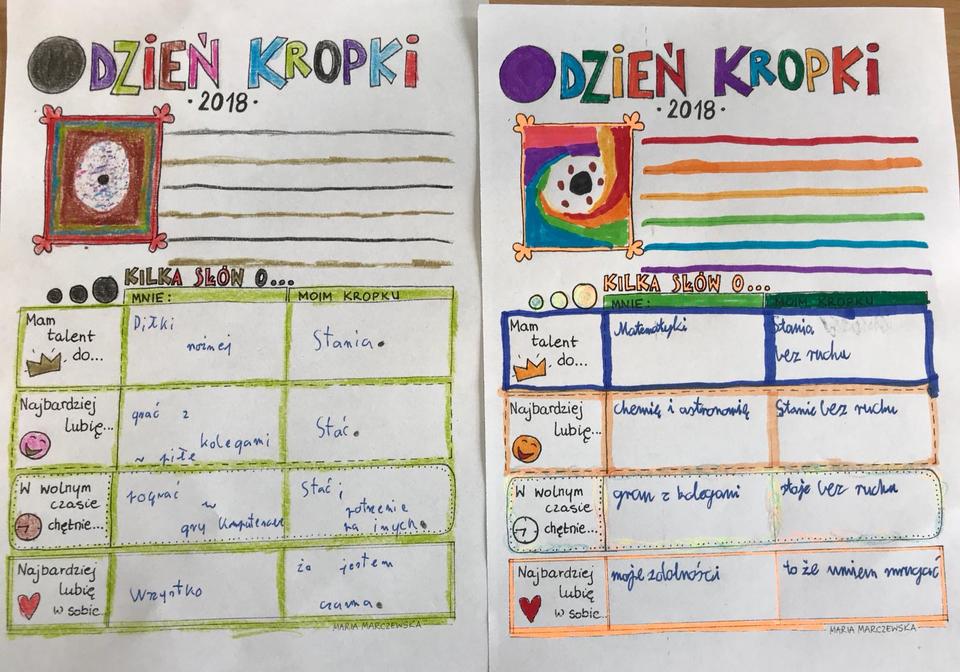 DZIEŃ KROPKI
·2018·
KILKA SŁÓW O...
MNIE:
MOIM KROPKU
Mam talent do...
Piłki
nożnej
Stania.
Najbardziej lubię...
grać z
kolegami
w piłę
Stać.
W wolnym czasie chętnie...
w
gry komputerowe
Stać i
na innych.
Najbardziej lubię w sobie...
Wszystko
że jestem
czarna.
MARIA MARCZEWSKA
DZIEŃ KROPKI
·2018·
KILKA SŁÓW O...
MNIE:
MOIM KROPKU
Mam talent do...
Matematyki
Stania
bez ruchu
Najbardziej lubię...
chemię i astronomię
Stanie bez ruchu
W wolnym czasie chętnie...
gram z kolegami
stoje bez ruchu
Najbardziej lubię w sobie...
moje zdolności
to że umiem mrugać
MARIA MARCZEWSKA